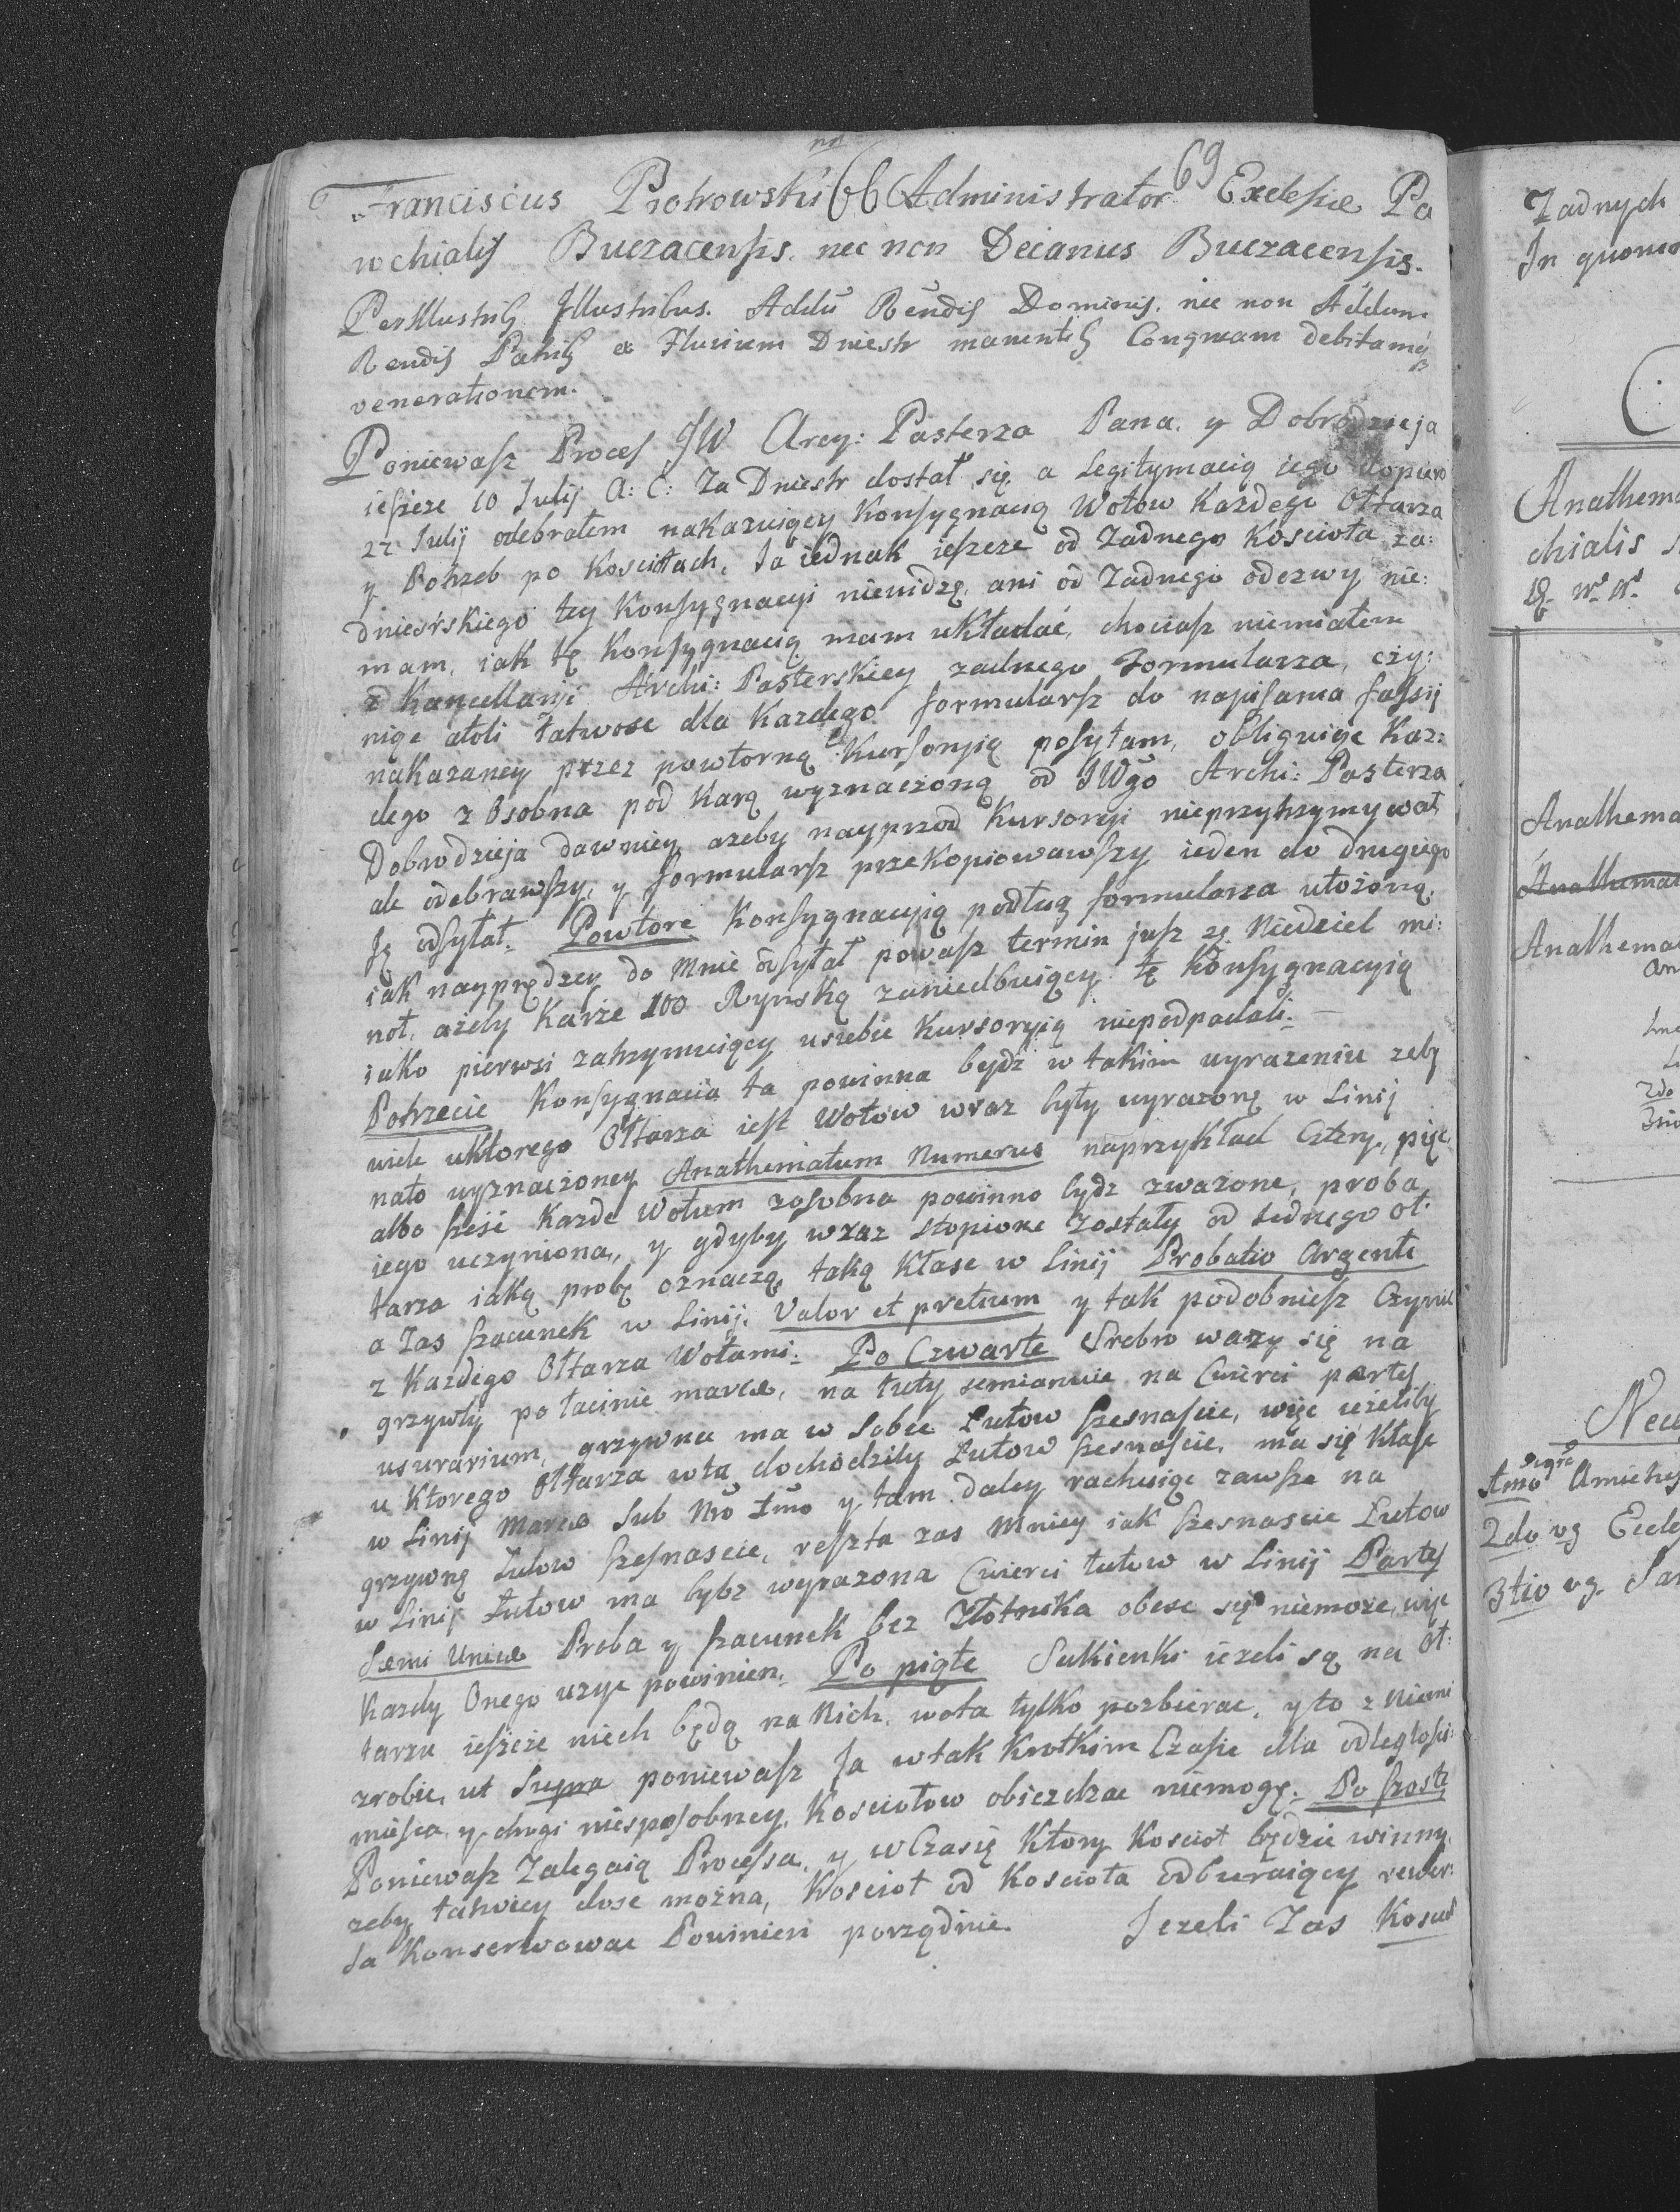 69
Franciscus Piotrowski 66 Administrator Ecclesiæ Pa
rochialis Buczacensis nec non Decanus Buczacensis.
Perillustribus Illustribus. Addũ Rendis Dominis, nec non Addum
Rendis Patribus ex Fluvium Dniestr manentibus Congruam debitamq
venerationem.
Poniewasz Proces JW Arcy: Pasterza Pana y Dobrodzieja
ieszcze 10 Julij A: C: Za Dniestr dostał się, a Legitymacią iego dopiero
22 Julij odebrałem nakazuiący Konsygnacią Wotow Każdego Ołtarza
y Potrzeb po Kosciołach, Ja iednak ieszcze od Żadnego Koscioła za:
dniesrskiego tey Konsygnacyi niewidzę, ani od Żadnego odezwy nie:
mam, iak tę Konsygnacią mam układać, chociasz niemiałem
z Kancellarii Archi: Pasterskiey zadnego Formularza, czy:
niąc atoli łatwosc dla Kazdego formularsz do napisania fassij
nakazaney przez powtorną Kursoryią posyłam, obliguiąc Kaz:
dego z Osobna pod Karą wyznaczoną od JWgo Archi: Pasterza
Dobrodzieja dawniey azeby nayprzod Kursoryi nieprzytrzymywał
ale odebrawszy, y formularsz przekopiowawszy ieden do drugiego
Ję odsyłał. Powtore Konsygnacyią podług formularza ułożoną,
iak nayprędzey do mnie odsyłał powasz termin jusz 2ę Niedziel mi:
noł, ażeby Karze 100 Rynską zaniedbuiący tę Konsygnacyią
iako pierwsi zatrzymuiący usiebie Kursoryią niepodpadali.
Potrzecie Konsygnacia ta powinna bydź w takim wyrazeniu zeby
wiele uktorego Ołtarza iest Wotow wraz były wyrazone w Linij
nato wyznaczoney Anathematum Numerus naprzykład Cztery, pięc
albo szesć Kazde Wotum zosobna powinno bydz zwazone, proba
iego uczyniona, y gdyby wraz stopione zostały od Jednego oł:
tarza iaką probę oznaczą, taką Kłasc w Linij Probatio Argenti
a Zas szacunek w Linij. Valor et pretium y tak podobniesz Czynić
z Kazdego Ołtarza Wotami. Po Czwarte Srebro wazy się na
grzywny po łacinie marcæ, na łuty semiunciæ na Cwierci partes
usurarium, grzywna ma w Sobie Łutow szesnascie, więc ieżeliby
u Ktorego Ołtarza wta dochodziły Łutow szesnascie, ma się Kłasc
w Linij Marcæ Sub Nro 1mo y tam daley rachuiąc zawsze na
grzywnę Łutow szesnascie, reszta zas mniey iak szesnascie Łutow
w Linij Łutow ma bydz wyrazona Cwierci łutow w Linij Partes
Semi Unciæ Proba y szacunek bez Złotnika obesc się niemoze, więc
Kazdy Onego uzyc powinien. Po piąte Sukienki iezeli są na Oł:
tarzu ieszcze niech będą na Nich, wota tylko pozbierac, y to z Niemi
zrobic, ut Supra poniewasz Ja wtak Krotkim Czasie dla odległosci
miesca y drogi niesposobney, Kosciołow obiezdzac niemogę. Po szoste
Poniewasz Zalegaią Processa, y w Czasię Ktory Kosciol będzie winny,
zeby łatwiey dosc można, Kosciot od Koscioła odbieraiący rewer:
sa Konserwowac Powinien porządnie. Jezeli Zas Kosciol
Żadnych
In quorum
Anathema
chialis
Anathema
Anathema
2do
Amicties
2do vg Eccle
3tio vg. Sa